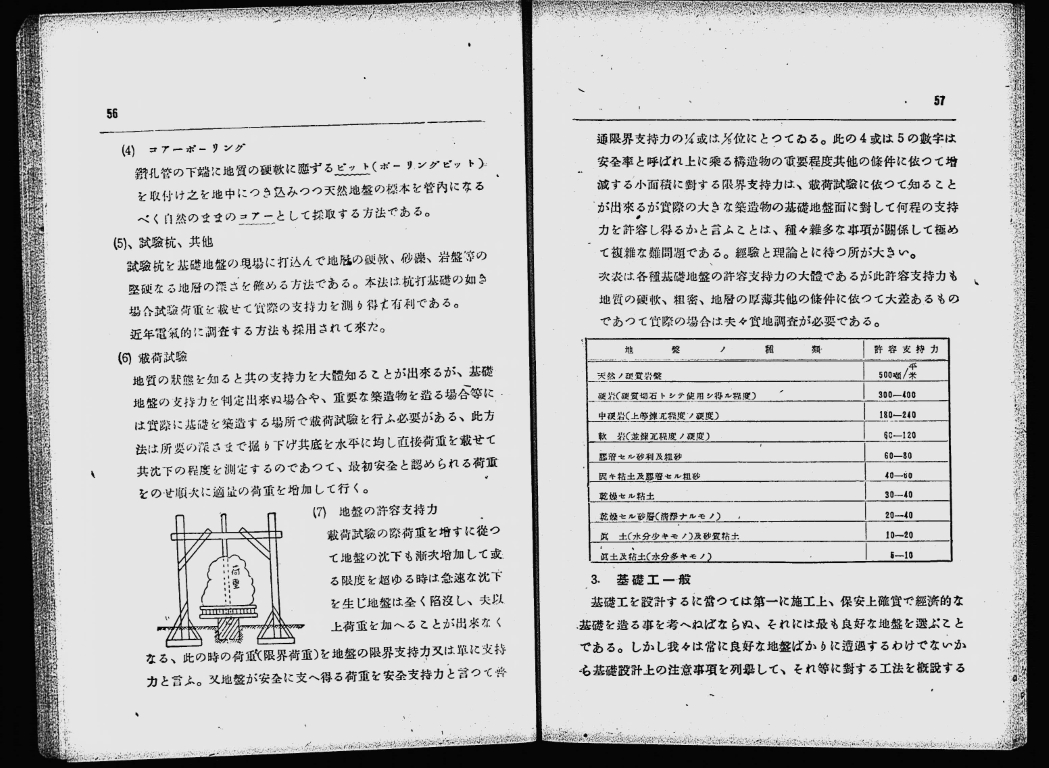 56
(4) コアーボーリング
鑽孔管の下端に地質の硬軟に應ずるビット(ボーリングビット)
を取付け之を地中につき込みつつ天然地盤の標本を管内になる
べく自然のままのコアーとして採取する方法である。
(5)、試驗杭、其他
試驗杭を基礎地盤の現場に打込んで地層の硬軟、砂礫、岩盤等の
堅硬なる地層の深さを確める方法である。本法は杭打基礎の如き
場合試驗荷重を載せて實際の支持力を測り得て有利である。
近年電氣的に調査する方法も採用されて來た。
(6) 載荷試驗
地質の狀態を知ると共の支持力を大體知ることが出來るが、基礎
地盤の支持力を判定出來ぬ場合や、重要な築造物を造る場合等に
は實際に基礎を築造する場所で載荷試驗を行ふ必要がある、此方
法は所要の深さまで掘り下げ共底を水平に均し直接荷重を載せて
共沈下の程度を測定するのであつて、最初安全と認められる荷重
をのせ順次に適量の荷重を増加して行く。
(7) 地盤の許容支持力
載荷試驗の際荷重を增すに從つ
て地盤の沈下も漸次增加して或
る限度を超ゆる時は急速な沈下
を生じ地盤は全く陷沒し、夫以
上荷重を加へることが出來なく
荷重
なる、此の時の荷重(限界荷重)を地盤の限界支持力又は單に支持
力と言ふ。又地盤が安全に支へ得る荷重を安全支持力と言つて普
57
通限界支持力の¼或は⅕位にとつてゐる。此の4或は5の數字は
安全率と呼ばれ上に乘る構造物の重要程度其他の條件に依つて增
減する小面積に對する限界支持力は、載荷試驗に依つて知ること
が出來るが實際の大きな築造物の基礎地盤面に對して何程の支持
力を許容し得るかと言ふことは、種々雜多な事項が關係して極め
て複雜な難問題である。經驗と理論とに待つ所が大きい。
次表は各種基礎地盤の許容支持力の大體であるが此許容支持力も
地質の硬軟、粗密、地層の厚薄其他の條件に依つて大差あるもの
であつて實際の場合は夫々實地調査が必要である。
地盤ノ種類 許容支持力
天然ノ硬質岩盤 500瓲/平米
硬岩(硬質切石トシテ使用シ得ル程度) 300—400
中硬岩(上等煉瓦程度ノ硬度) 180—240
軟 岩(並煉瓦程度ノ硬度) 60—120
膠着セル砂利及粗砂 60—80
固キ粘土及膠着セル粗砂 40—60
乾燥セル粘土 30—40
乾燥セル砂層(清淨ナルモノ) 20—40
眞 土(水分少キモノ)及砂質粘土 10—20
眞土及粘土(水分多キモノ) 5—10
3. 基礎工一般
基礎工を設計するに當つては第一に施工上、保安上確實で經濟的な
基礎を造る事を考へねばならぬ、それには最も良好な地盤を選ぶこと
である。しかし我々は常に良好な地盤ばかりに遭遇するわけでないか
ら基礎設計上の注意事項を列擧して、それ等に對する工法を槪說する